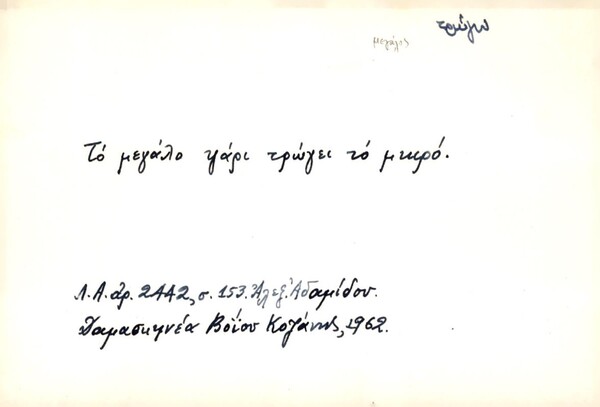 τρώγω
μεγάλος
Τό μεγάλο ψάρι τρώγει τό μικρό.
Λ.Α. ἀρ. 2442, σ. 153. Ἀλεξ. Ἀδαμίδου.
Δαμασκηνέα Βοΐου Κοζάνης, 1962.